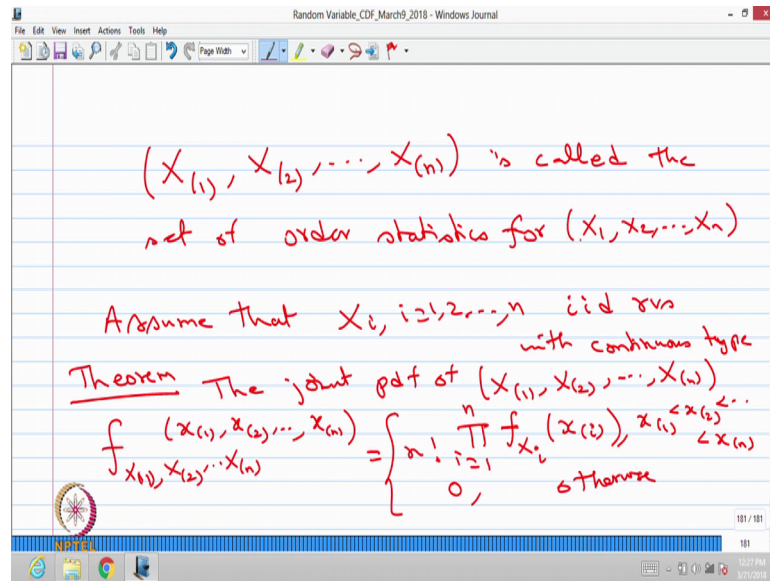 Random Variable_CDF_March9_2018 - Windows Journal
File Edit View Insert Actions Tools Help
Page Width
(X(1), X(2), ..., X(n)) is called the
set of order statistics for (X1, X2, ..., Xn)
Assume that Xi, i=1,2,...,n iid rvs
with continuous type
Theorem The joint pdf of (X(1), X(2), ..., X(n))
f X(1), X(2), ... X(n) (x(1), x(2), ..., x(n)) = { n! ∏ i=1 n f Xi (x(i)), x(1) < x(2) < .. < x(n)
0, otherwise
181 / 181
NPTEL
181
12:27 PM
3/21/2018